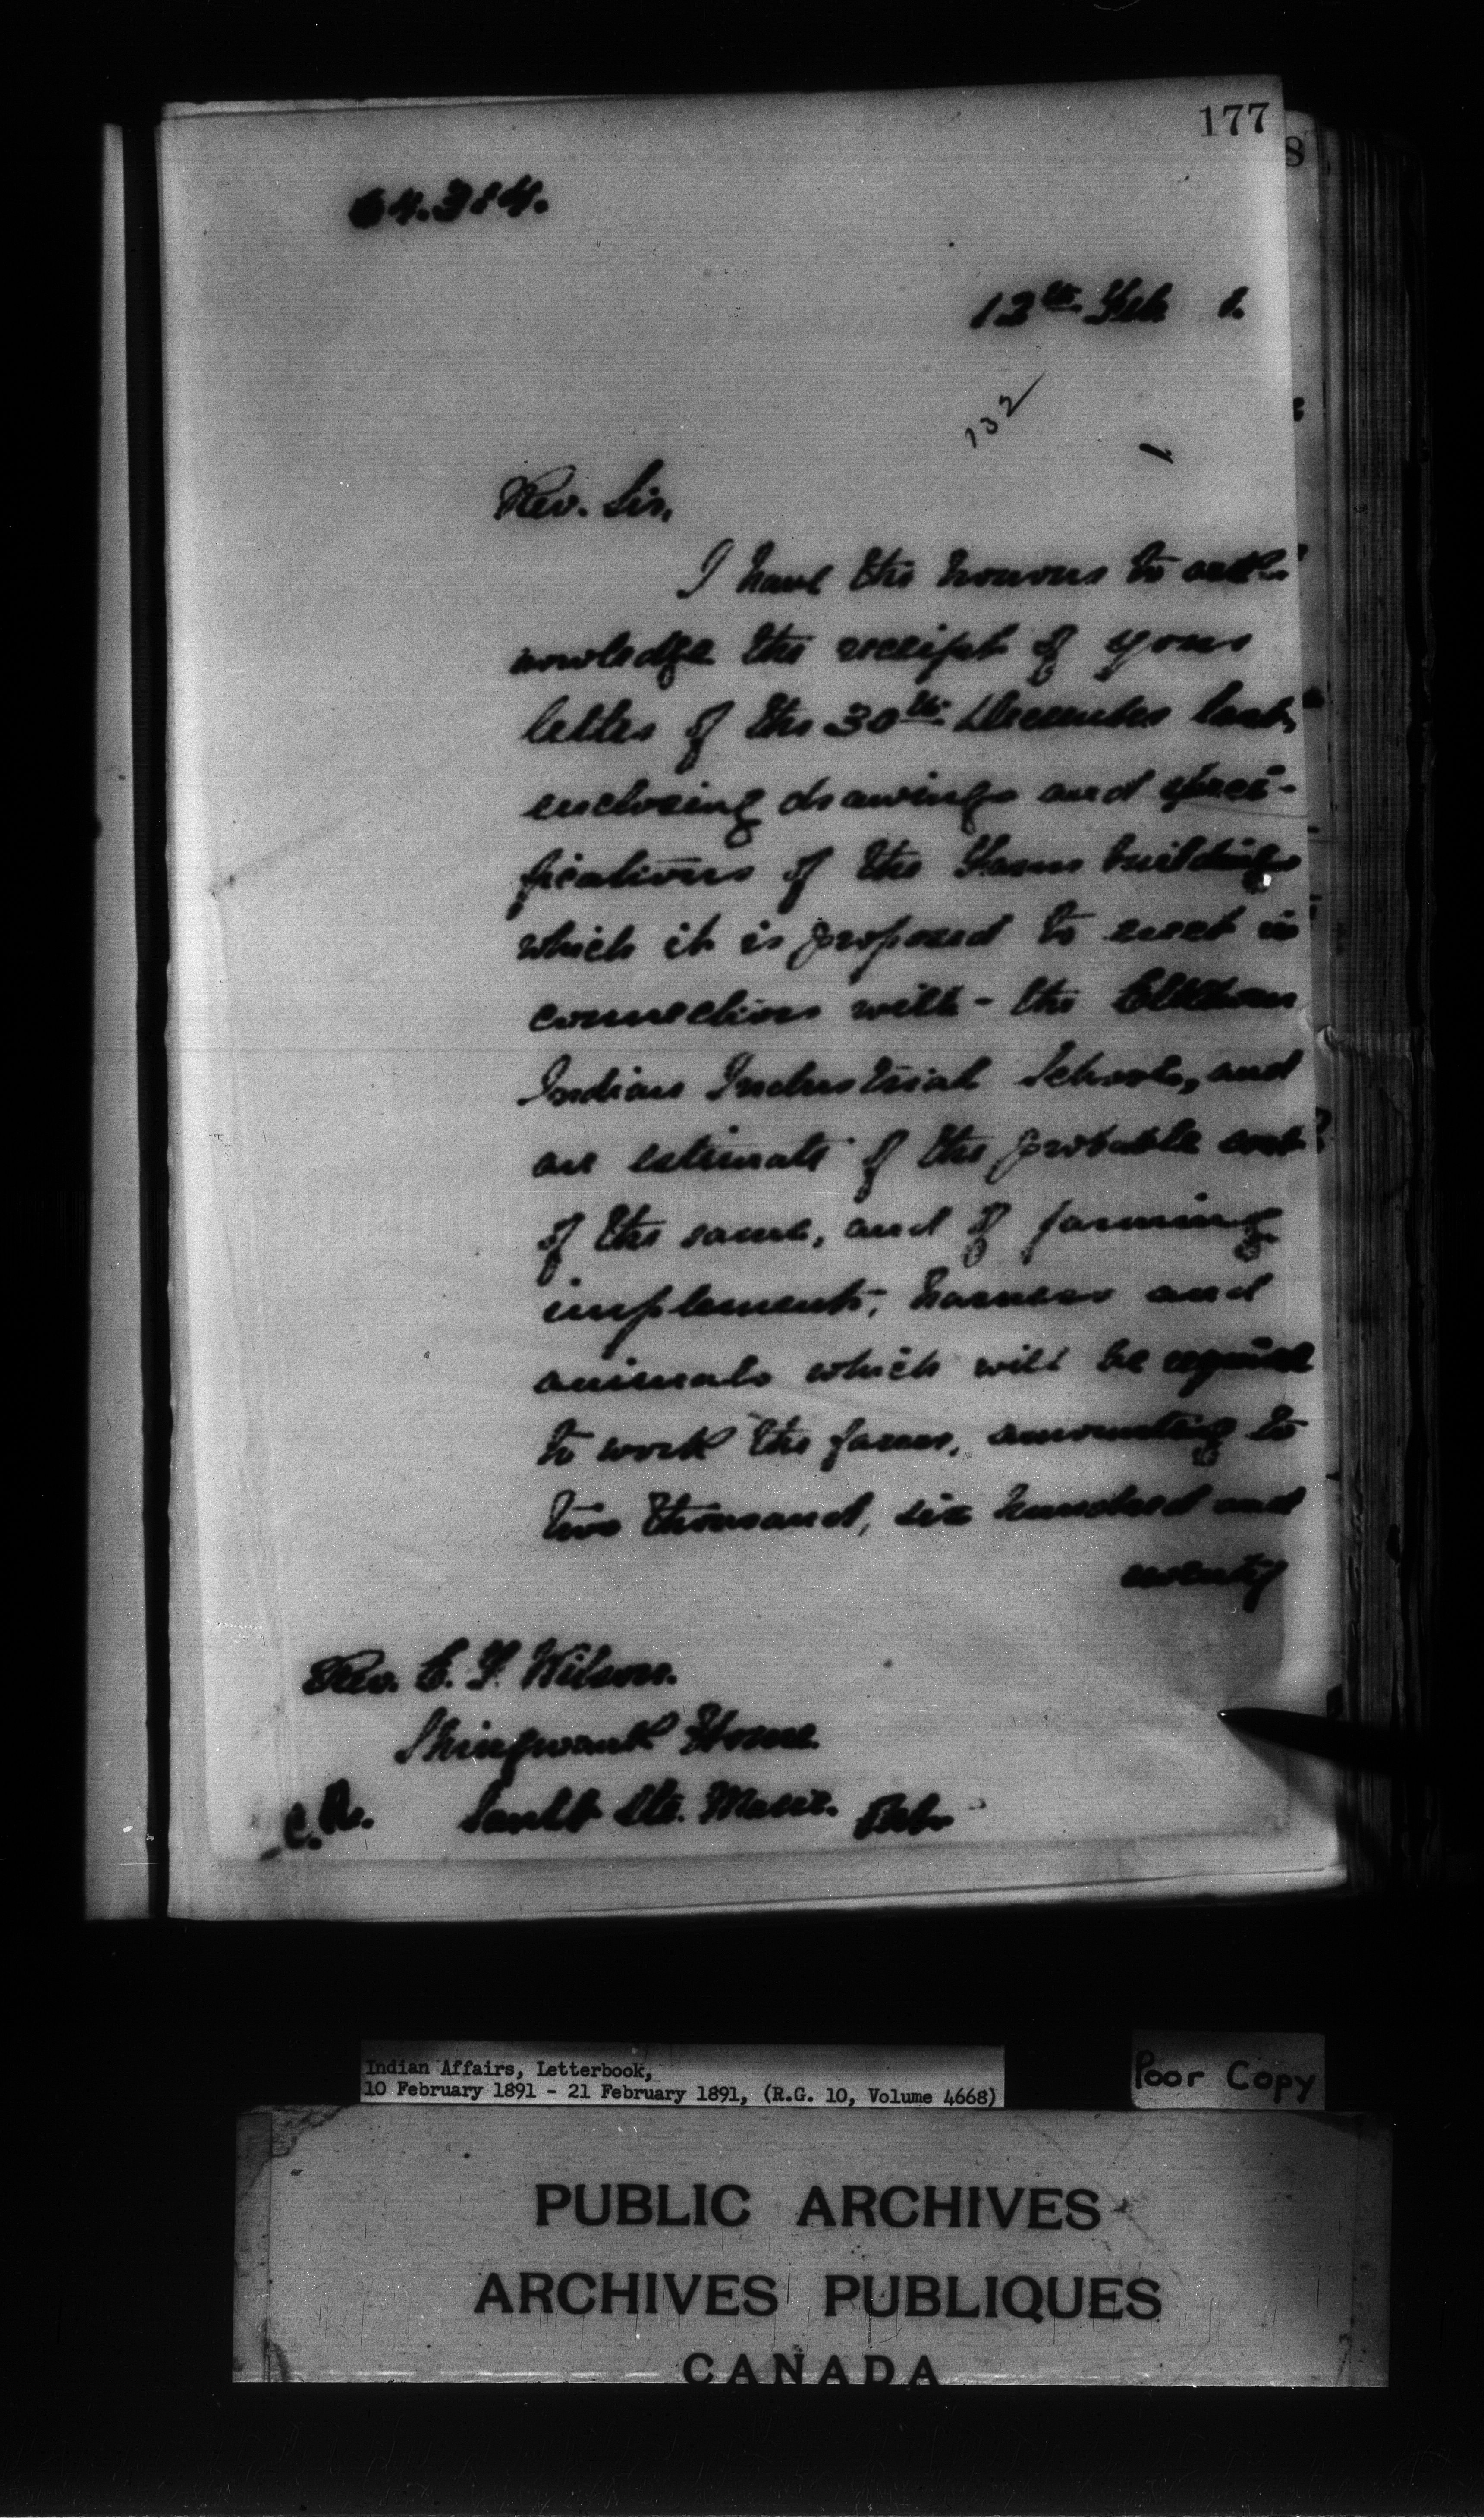 177
8
64.314.
13th Feb. 1.
132
Rev. Sir,
I have the honour to ack-
nowledge the receipt of your
letter of the 30th December last,
enclosing drawings and speci-
fications of the Farm buildings
which it is proposed to erect in
connection with the Elkhorn
Indian Industrial School, and
an estimate of the probable cost
of the same, and of farming
implements, harness and
animals which will be required
to work the farm, amounting to
two thousand, six hundred and
Rev. E. F. Wilson.
Shingwauk Home
Sault Ste. Marie. Ont.
Indian Affairs, Letterbook,
10 February 1891 - 21 February 1891, (R.G. 10, Volume 4668)
Poor Copy
PUBLIC ARCHIVES
ARCHIVES PUBLIQUES
CANADA